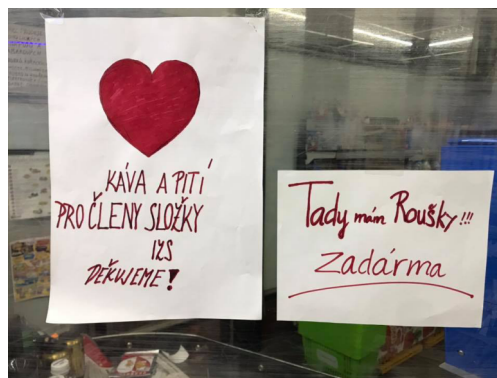 KÁVA A PITÍ
PRO ČLENY SLOŽKY
IZS
DĚKUJEME!
Tady mám Roušky!!!
zadárma